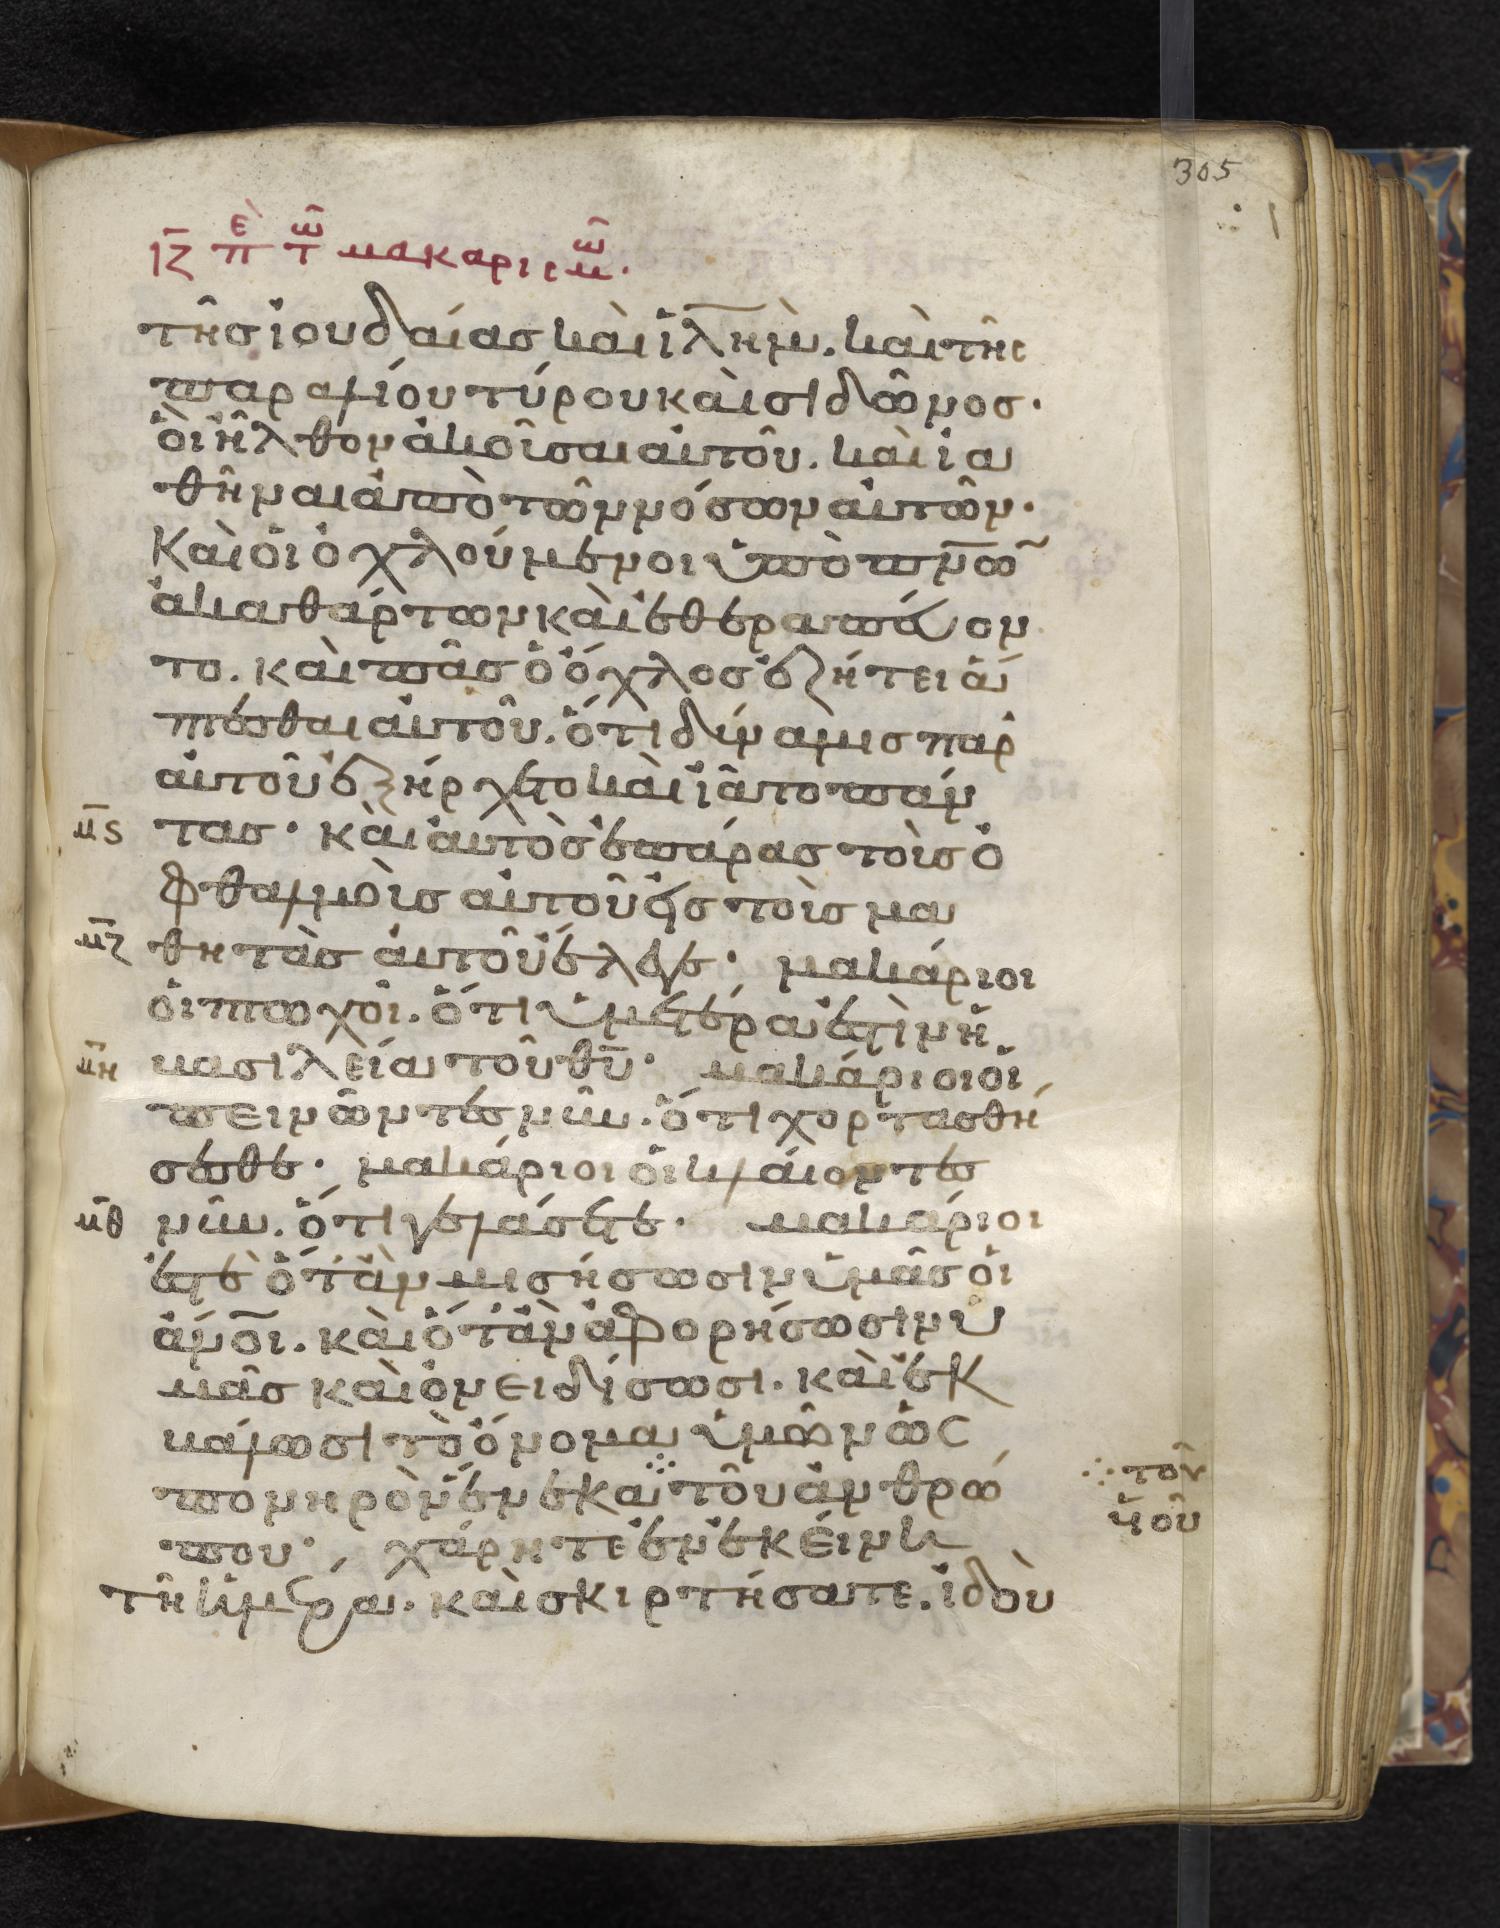 305
ιζ πε τω μακαρισμω.
τῆσ ἰουδαίασ καὶ ἰλῆμ. καὶ τῆς
παραλίου τύρου καὶ σιδῶνοσ.
ὁὶ ἦλθον ἀκοῦσαι αὐτοῦ. καὶ ἰα
θῆναι ἀπὸ τῶν νόσων αὐτῶν.
Καὶ ὁι ὀχλούμενοι ὑπὸ πνω̃
ἀκαθάρτων καὶ ἐθεραπεύον
το. καὶ πᾶσ ὁ ὄχλοσ ἐζήτει ἅ
πτεσθαι αὐτοῦ. ὅτι δύναμισ παρ
αὐτοῦ ἐξήρχετο καὶ ἰᾶτο πάν
μς τασ. καὶ αὐτὸσ ἐπάρασ τοὺσ ὀ
φθαλμοὺσ αὐτοῦ εἰσ τοὺσ μα
μζ θητὰσ αὐτοῦ ἔλεγε. μακάριοι
ὁι πτωχοὶ. ὅτι ὑμετέρα ἐστὶν ἡ
μη βασιλεία τοῦ θυ. μακάριοι ὁι
πεινῶντεσ νῦν. ὅτι χορτασθή
σεσθε. μακάριοι ὁι κλαίοντεσ
μθ νῦν. ὅτι γελάσετε. μακάριοι
ἐστὲ ὅτὰν μισήσωσιν ὑμᾶσ ὁι
ἄνοι. καὶ ὅτὰν ἀφορήσωσιν ὑ
μᾶσ καὶ ὀνειδίσωσι. καὶ ἐκ
βάλωσι τὸ ὄνομα ὑμῶν ὡς
πονηρὸν ἕνεκα τοῦ ἀνθρώ
που. χάρητε ἐν ἐκείνη
τῆ ἡμέρα. καὶ σκιρτήσατε. ἰδοὺ
τοῦ
ὑοῦ